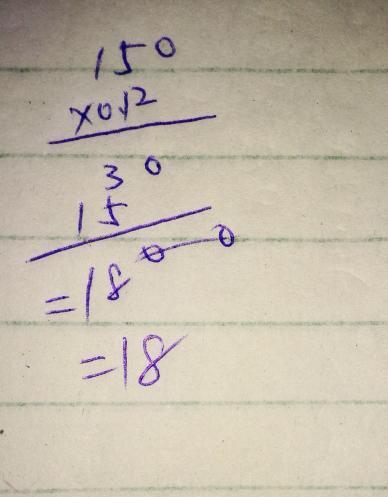 150
×0.12
30
15
=1800
=18